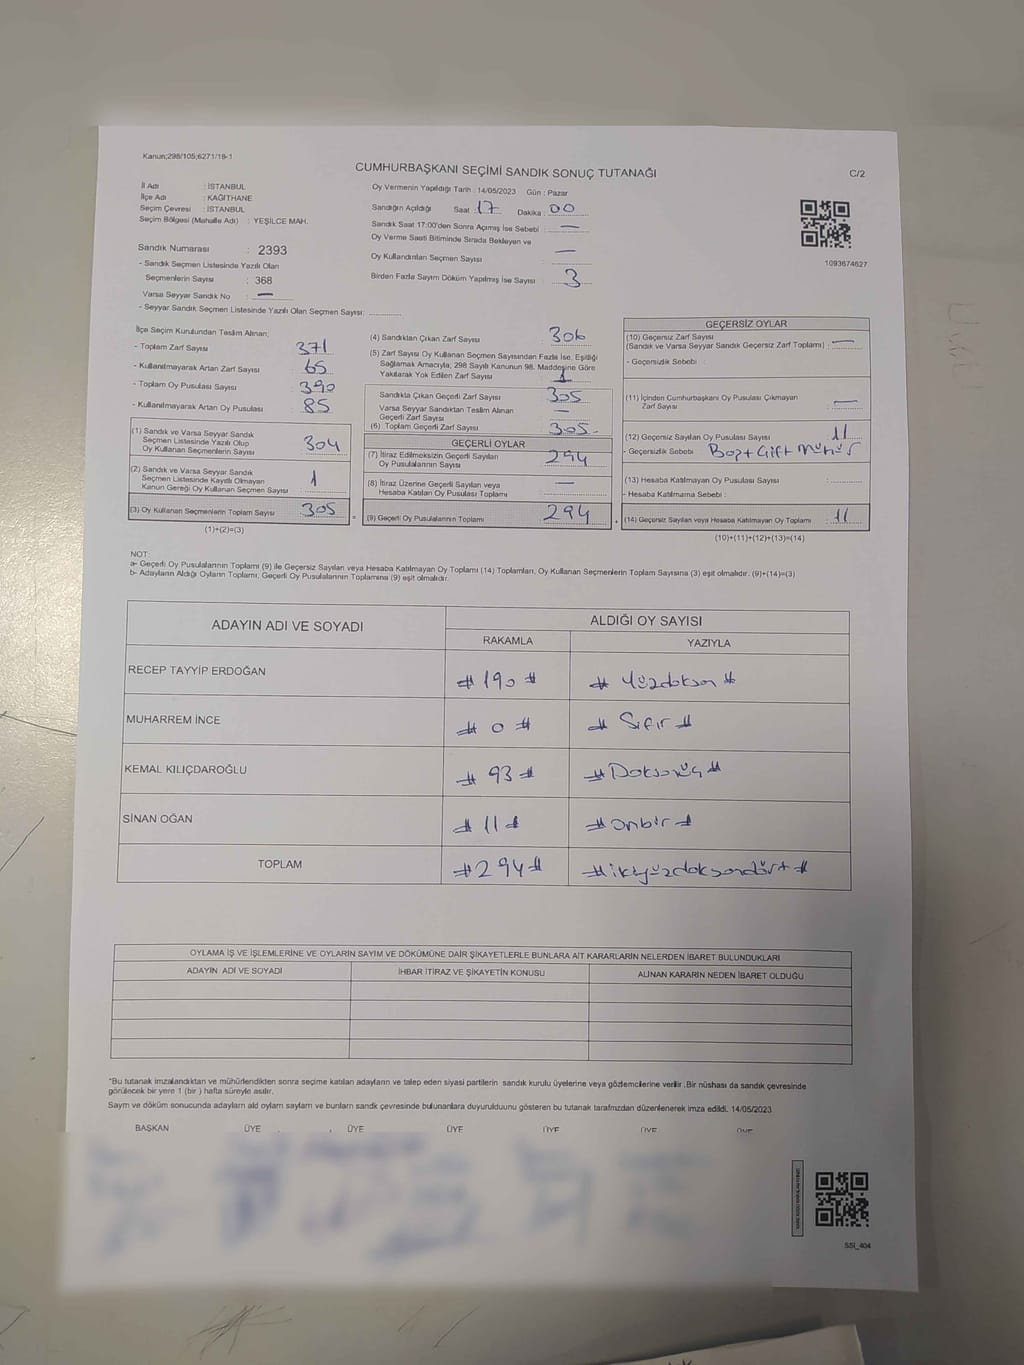 Kanun;298/105;6271/18-1
CUMHURBAŞKANI SEÇİMİ SANDIK SONUÇ TUTANAĞI
C/2
İl Adı : İSTANBUL
İlçe Adı : KAĞITHANE
Seçim Çevresi : İSTANBUL
Seçim Bölgesi (Mahalle Adı) : YEŞİLCE MAH.
Sandık Numarası : 2393
- Sandık Seçmen Listesinde Yazılı Olan
Seçmenlerin Sayısı : 368
Varsa Seyyar Sandık No : —
- Seyyar Sandık Seçmen Listesinde Yazılı Olan Seçmen Sayısı:
Oy Vermenin Yapıldığı Tarih : 14/05/2023 Gün : Pazar
Sandığın Açıldığı Saat : 17 Dakika : 00
Sandık Saat 17:00'den Sonra Açımış İse Sebebi : —
Oy Verme Saati Bitiminde Sırada Bekleyen ve
Oy Kullandırılan Seçmen Sayısı : —
Birden Fazla Sayım Döküm Yapılmış İse Sayısı : 3
1093674627
İlçe Seçim Kurulundan Teslim Alınan;
- Toplam Zarf Sayısı 371
- Kullanılmayarak Artan Zarf Sayısı 65
- Toplam Oy Pusulası Sayısı 390
- Kullanılmayarak Artan Oy Pusulası 85
(1) Sandık ve Varsa Seyyar Sandık
Seçmen Listesinde Yazılı Olup
Oy Kullanan Seçmenlerin Sayısı 304
(2) Sandık ve Varsa Seyyar Sandık
Seçmen Listesinde Kayıtlı Olmayan
Kanun Gereği Oy Kullanan Seçmen Sayısı 1
(3) Oy Kullanan Seçmenlerin Toplam Sayısı 305
(1)+(2)=(3)
(4) Sandıktan Çıkan Zarf Sayısı 306
(5) Zarf Sayısı Oy Kullanan Seçmen Sayısından Fazla İse, Eşitliği
Sağlamak Amacıyla; 298 Sayılı Kanunun 98. Maddesine Göre
Yakılarak Yok Edilen Zarf Sayısı 1
Sandıkta Çıkan Geçerli Zarf Sayısı 305
Varsa Seyyar Sandıktan Teslim Alınan
Geçerli Zarf Sayısı —
(6) Toplam Geçerli Zarf Sayısı 305
GEÇERLİ OYLAR
(7) İtiraz Edilmeksizin Geçerli Sayılan
Oy Pusulalarının Sayısı 294
(8) İtiraz Üzerine Geçerli Sayılan veya
Hesaba Katılan Oy Pusulası Toplamı —
(9) Geçerli Oy Pusulalarının Toplamı 294
GEÇERSİZ OYLAR
(10) Geçersiz Zarf Sayısı
(Sandık ve Varsa Seyyar Sandık Geçersiz Zarf Toplamı) : —
- Geçersizlik Sebebi :
(11) İçinden Cumhurbaşkanı Oy Pusulası Çıkmayan
Zarf Sayısı —
(12) Geçersiz Sayılan Oy Pusulası Sayısı 11
- Geçersizlik Sebebi Boş+Çift Mühür
(13) Hesaba Katılmayan Oy Pusulası Sayısı
- Hesaba Katılmama Sebebi :
(14) Geçersiz Sayılan veya Hesaba Katılmayan Oy Toplamı : 11
(10)+(11)+(12)+(13)=(14)
NOT:
a- Geçerli Oy Pusulalarının Toplamı (9) ile Geçersiz Sayılan veya Hesaba Katılmayan Oy Toplamı (14) Toplamları, Oy Kullanan Seçmenlerin Toplam Sayısına (3) eşit olmalıdır. (9)+(14)=(3)
b- Adayların Aldığı Oyların Toplamı, Geçerli Oy Pusulalarının Toplamına (9) eşit olmalıdır.
ADAYIN ADI VE SOYADI
ALDIĞI OY SAYISI
RAKAMLA YAZIYLA
RECEP TAYYİP ERDOĞAN #190# #Yüzdoksan#
MUHARREM İNCE #0# #Sıfır#
KEMAL KILIÇDAROĞLU #93# #Doksanüç#
SİNAN OĞAN #11# #onbir#
TOPLAM #294# #ikiyüzdoksandört#
OYLAMA İŞ VE İŞLEMLERİNE VE OYLARIN SAYIM VE DÖKÜMÜNE DAİR ŞİKAYETLERLE BUNLARA AİT KARARLARIN NELERDEN İBARET BULUNDUKLARI
ADAYIN ADI VE SOYADI İHBAR İTİRAZ VE ŞİKAYETİN KONUSU ALINAN KARARIN NEDEN İBARET OLDUĞU
"Bu tutanak imzalandıktan ve mühürlendikten sonra seçime katılan adayların ve talep eden siyasi partilerin sandık kurulu üyelerine veya gözlemcilerine verilir .Bir nüshası da sandık çevresinde
görülecek bir yere 1 (bir ) hafta süreyle asılır.
Sayım ve döküm sonucunda adayların ald oyların sayların ve bunların sandk çevresinde bulunanlara duyurulduunu gösteren bu tutanak tarafmzdan düzenlenerek imza edildi. 14/05/2023
BAŞKAN ÜYE ÜYE ÜYE ÜYE ÜYE ÜYE
SSİ_404